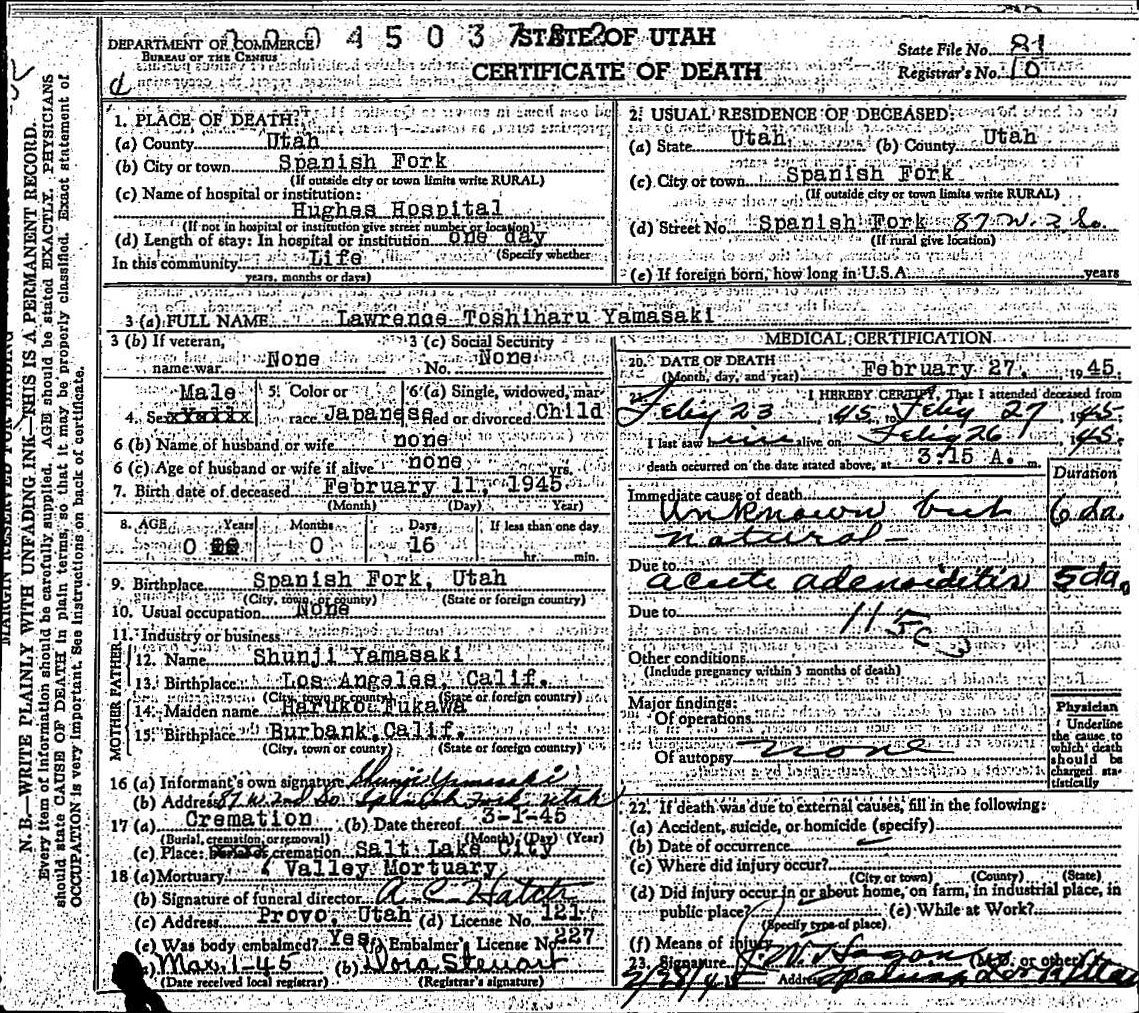 DEPARTMENT OF COMMERCE
BUREAU OF THE CENSUS
STATE OF UTAH
CERTIFICATE OF DEATH
State File No. 81
Registrar's No. 10
N. B.—WRITE PLAINLY WITH UNFADING INK—THIS IS A PERMANENT RECORD.
Every item of information should be carefully supplied. AGE should be stated EXACTLY. PHYSICIANS
should state CAUSE OF DEATH in plain terms, so that it may be properly classified. Exact statement of
OCCUPATION is very important. See instructions on back of certificate.
1. PLACE OF DEATH:
(a) County Utah
(b) City or town Spanish Fork
(If outside city or town limits write RURAL)
(c) Name of hospital or institution:
Hughes Hospital
(If not in hospital or institution give street number or location)
(d) Length of stay: In hospital or institution one day
In this community Life (Specify whether
years, months or days)
2. USUAL RESIDENCE OF DECEASED:
(a) State Utah (b) County Utah
(c) City or town Spanish Fork
(If outside city or town limits write RURAL)
(d) Street No. Spanish Fork 87 W. 2 So.
(If rural give location)
(e) If foreign born, how long in U.S.A. years
3 (a) FULL NAME Lawrence Toshiharu Yamasaki
3 (b) If veteran, 3 (c) Social Security
name war None No. None
Male 5. Color or 6 (a) Single, widowed, mar-
4. Sex race Japanese ried or divorced Child
6 (b) Name of husband or wife none
6 (c) Age of husband or wife if alive none yrs.
7. Birth date of deceased February 11, 1945
(Month) (Day) (Year)
8. AGE Years Months Days If less than one day
0 0 16 hr. min.
9. Birthplace Spanish Fork, Utah
(City, town, or county) (State or foreign country)
10. Usual occupation None
11. Industry or business
FATHER
12. Name Shunji Yamasaki
13. Birthplace Los Angeles, Calif.
(City, town or county) (State or foreign country)
MOTHER
14. Maiden name Haruko Fukawa
15. Birthplace Burbank, Calif.
(City, town or county) (State or foreign country)
16 (a) Informant's own signature Shunji Yamasaki
(b) Address 87 W. 2nd So. Spanish Fork, Utah
17 (a) Cremation (b) Date thereof 3-1-45
(Burial, cremation, or removal) (Month) (Day) (Year)
(c) Place: cremation Salt Lake City
18 (a) Mortuary Valley Mortuary
(b) Signature of funeral director A. C. Hatch
(c) Address Provo, Utah (d) License No. 121
(e) Was body embalmed? Yes (f) Embalmer's License No. 227
Mar. 1-45 (b) Dora Stewart
(Date received local registrar) (Registrar's signature)
MEDICAL CERTIFICATION
20. DATE OF DEATH February 27, 1945.
(Month, day, and year)
21. I HEREBY CERTIFY, That I attended deceased from
23, 1945, to 27, 1945
I last saw him alive on 26, 1945;
death occurred on the date stated above, at 3:15 A. m.
Duration
Immediate cause of death
Unknown but 6 da.
natural—
Due to
acute adenoiditis 5 da.
Due to
115c
Other conditions
(Include pregnancy within 3 months of death)
Major findings:
Of operations
Of autopsy none
Physician
Underline
the cause to
which death
should be
charged sta-
tistically
22. If death was due to external causes, fill in the following:
(a) Accident, suicide, or homicide (specify)
(b) Date of occurrence
(c) Where did injury occur?
(City or town) (County) (State)
(d) Did injury occur in or about home, on farm, in industrial place, in
public place? (e) While at Work?
(Specify type of place)
(f) Means of injury
23. Signature J. W. Hagan (M.D. or other)
2/28/45 Address